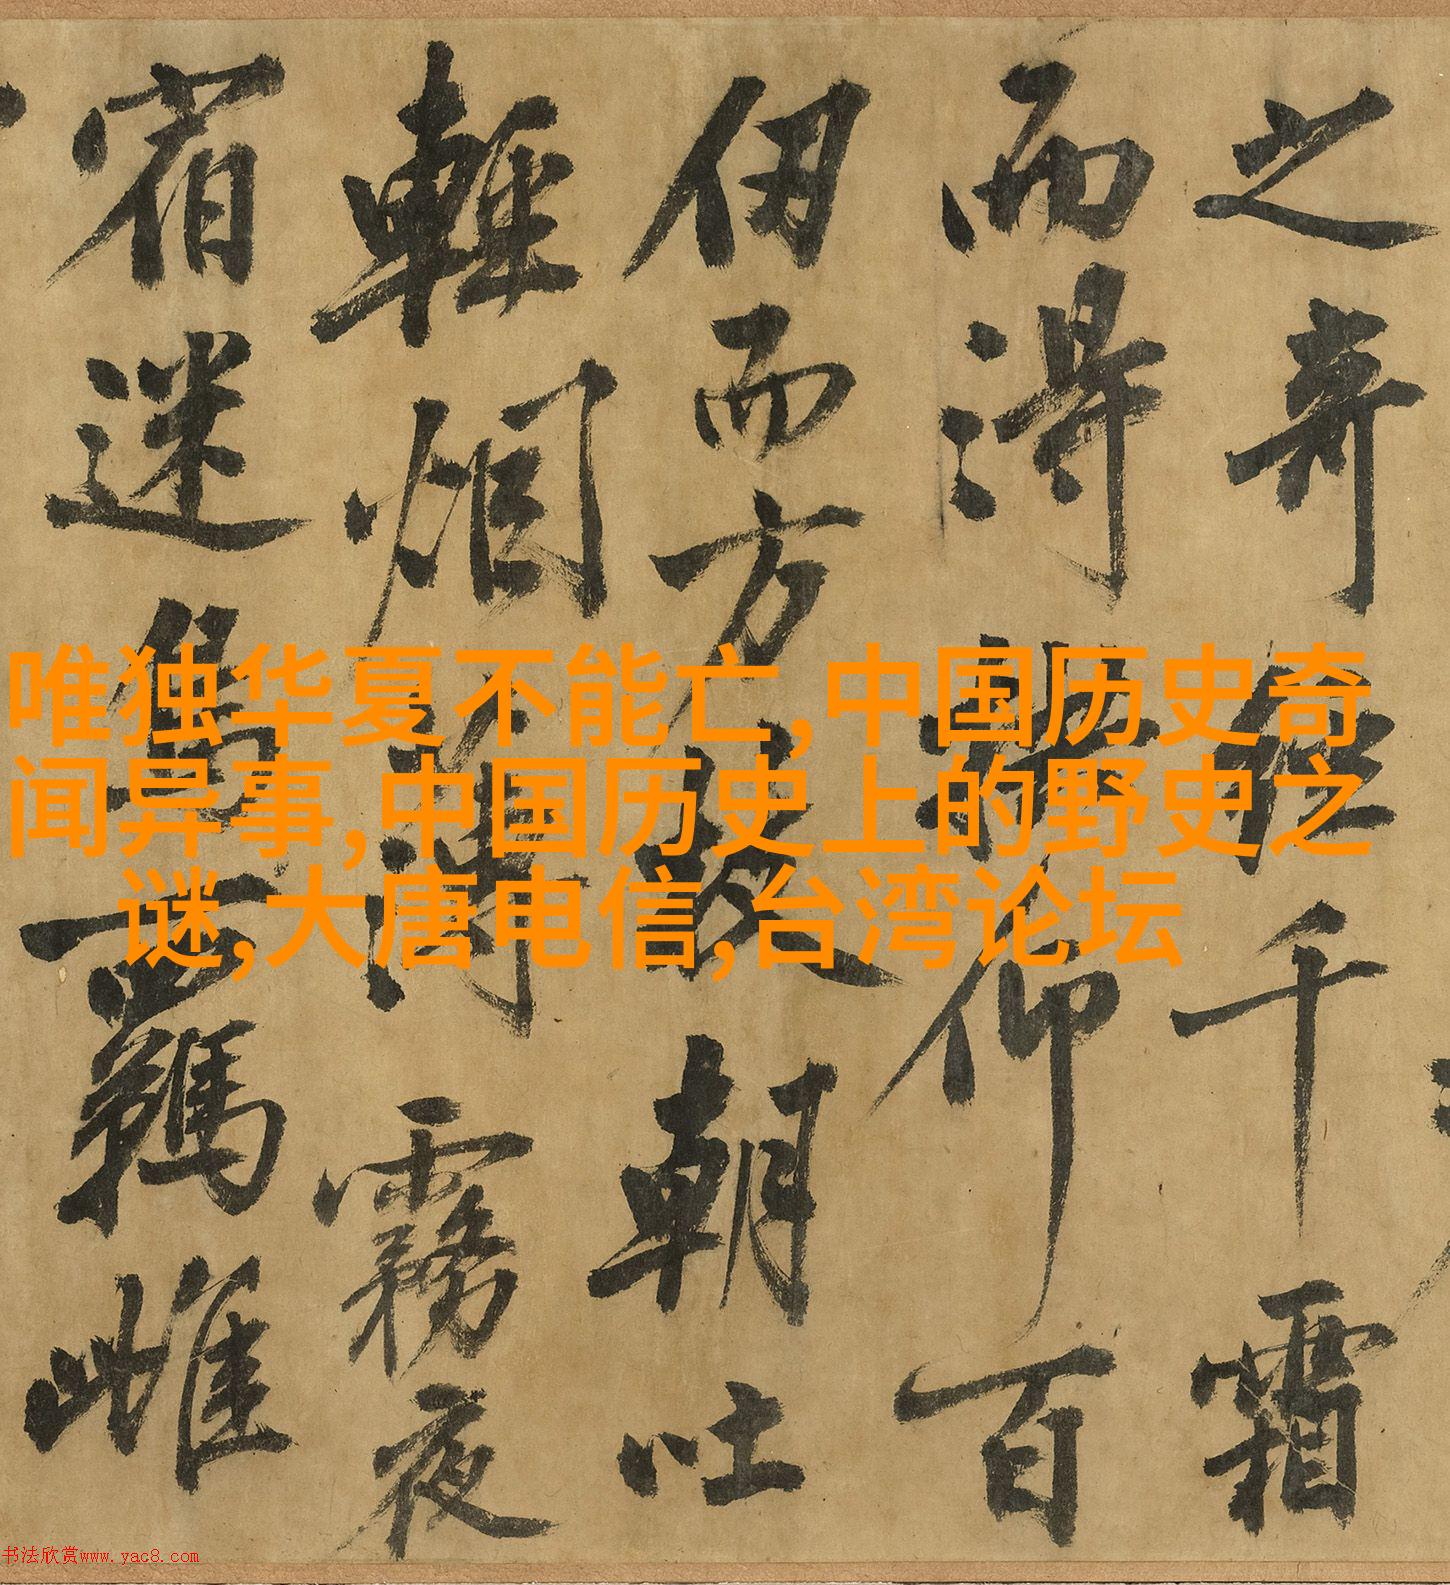 之奇經千霜
而得仰百
仞而方朝吐
輕烟薄霧夜
宿迷鳥羈雌
唯独华夏不能亡,中国历史奇
闻异事,中国历史上的野史之
谜,大唐电信,台湾论坛
书法欣赏www.yac8.com